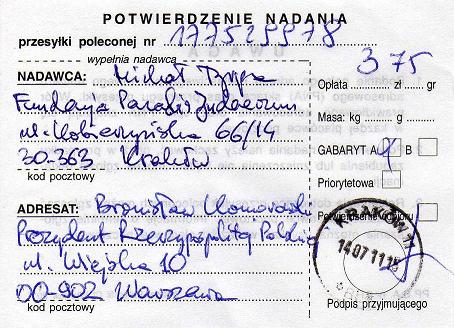 POTWIERDZENIE NADANIA
przesyłki poleconej nr 177529978
wypełnia nadawca
NADAWCA: Michał
Fundacja Paradis Judaeorum
ul. Kobierzyńska 66/14
30-363 Kraków
kod pocztowy
ADRESAT: Bronisław Komorowski
Prezydent Rzeczypospolitej Polskiej
ul. Wiejska 10
00-902 Warszawa
kod pocztowy
3 75
Opłata zł gr
Masa: kg g
GABARYT A B
Priorytetowa
Potwierdzenie odbioru
KRAKÓW
14.07.11
Podpis przyjmującego